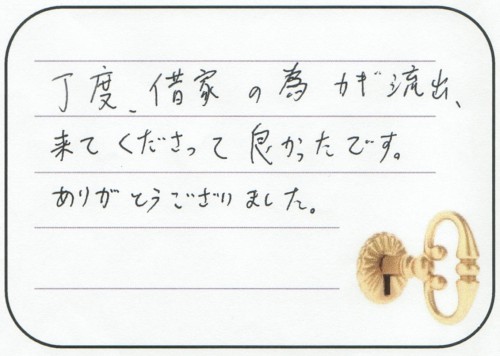 丁度、借家の為カギ流出、
来てくださって良かったです。
ありがとうございました。